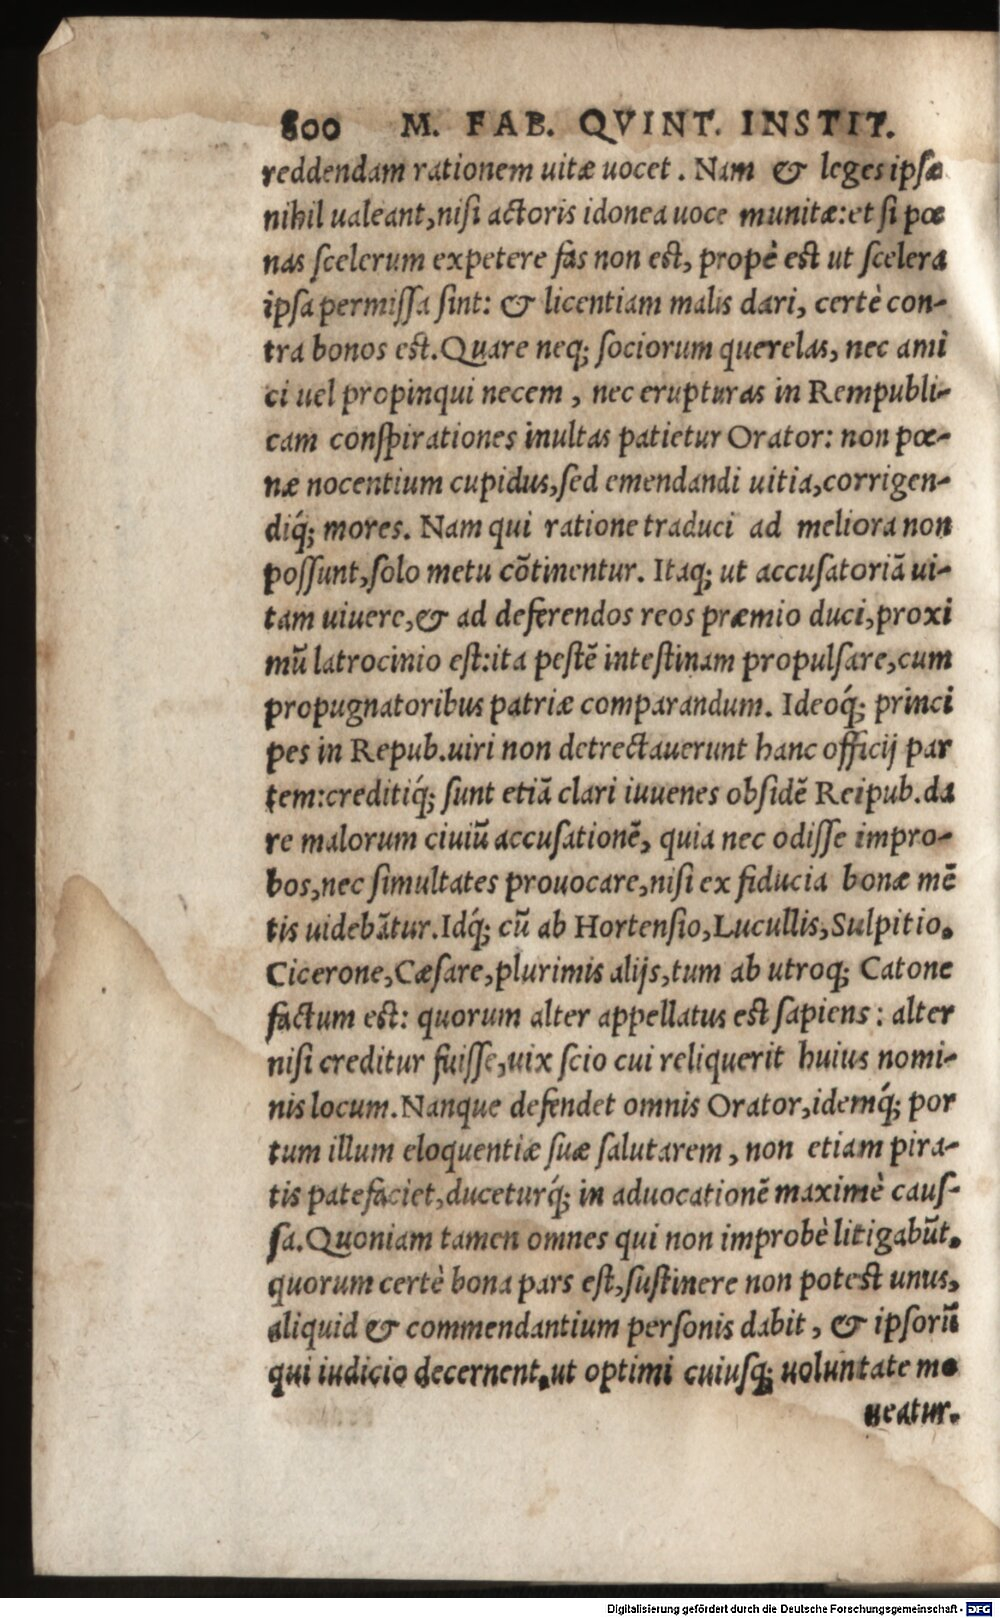 800 M. FAB. QVINT. INSTIT.
reddendam rationem uitæ uocet. Nam & leges ipsæ
nihil ualeant, nisi actoris idonea uoce munitæ: et si pœ
nas scelerum expetere fas non est, propè est ut scelera
ipsa permissa sint: & licentiam malis dari, certè con-
tra bonos est. Quare neq; sociorum querelas, nec ami
ci uel propinqui necem, nec erupturas in Rempubli-
cam conspirationes inultas patietur Orator: non pœ-
næ nocentium cupidus, sed emendandi uitia, corrigen-
diq́; mores. Nam qui ratione traduci ad meliora non
possunt, solo metu cõtinentur. Itaq; ut accusatoriã ui-
tam uiuere, & ad deferendos reos præmio duci, proxi
mũ latrocinio est: ita pestẽ intestinam propulsare, cum
propugnatoribus patriæ comparandum. Ideoq́; princi
pes in Repub. uiri non detrectauerunt hanc officij par
tem: creditiq́; sunt etiã clari iuuenes obsidẽ Reipub. da
re malorum ciuiũ accusationẽ, quia nec odisse impro-
bos, nec simultates prouocare, nisi ex fiducia bonæ mẽ
tis uidebãtur. Idq́; cũ ab Hortensio, Lucullis, Sulpitio.
Cicerone, Cæsare, plurimis alijs, tum ab utroq; Catone
factum est: quorum alter appellatus est sapiens: alter
nisi creditur fuisse, uix scio cui reliquerit huius nomi-
nis locum. Nanque defendet omnis Orator, idemq́; por
tum illum eloquentiæ suæ salutarem, non etiam pira-
tis patefaciet, duceturq́; in aduocationẽ maximè caus-
sa. Quoniam tamen omnes qui non improbè litigabũt.
quorum certè bona pars est, sustinere non potest unus,
aliquid & commendantium personis dabit, & ipsorũ
qui iudicio decernent, ut optimi cuiusq; uoluntate mo
ueatur.
Digitalisierung gefördert durch die Deutsche Forschungsgemeinschaft - DFG